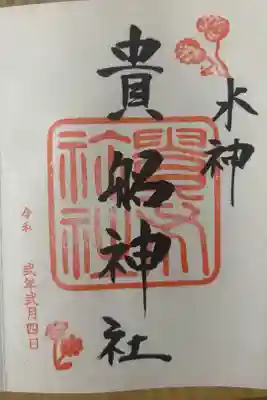 水神
貴船神社
令和
弐年弐月四日